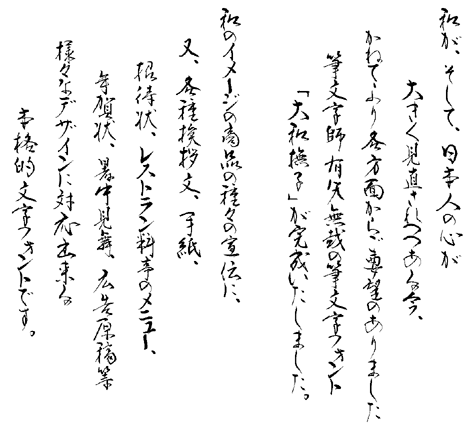 和が、そして、日本人の心が
大きく見直されつつある今、
かねてより各方面からご要望のありました
筆文字師 有光無哉の筆文字フォント
「大和撫子」が完成いたしました。
和のイメージの商品の種々の宣伝に、
又、各種挨拶文、手紙、
招待状、レストラン料亭のメニュー、
年賀状、暑中見舞、広告原稿等
様々なデザインに対応出来る
本格的文字フォントです。